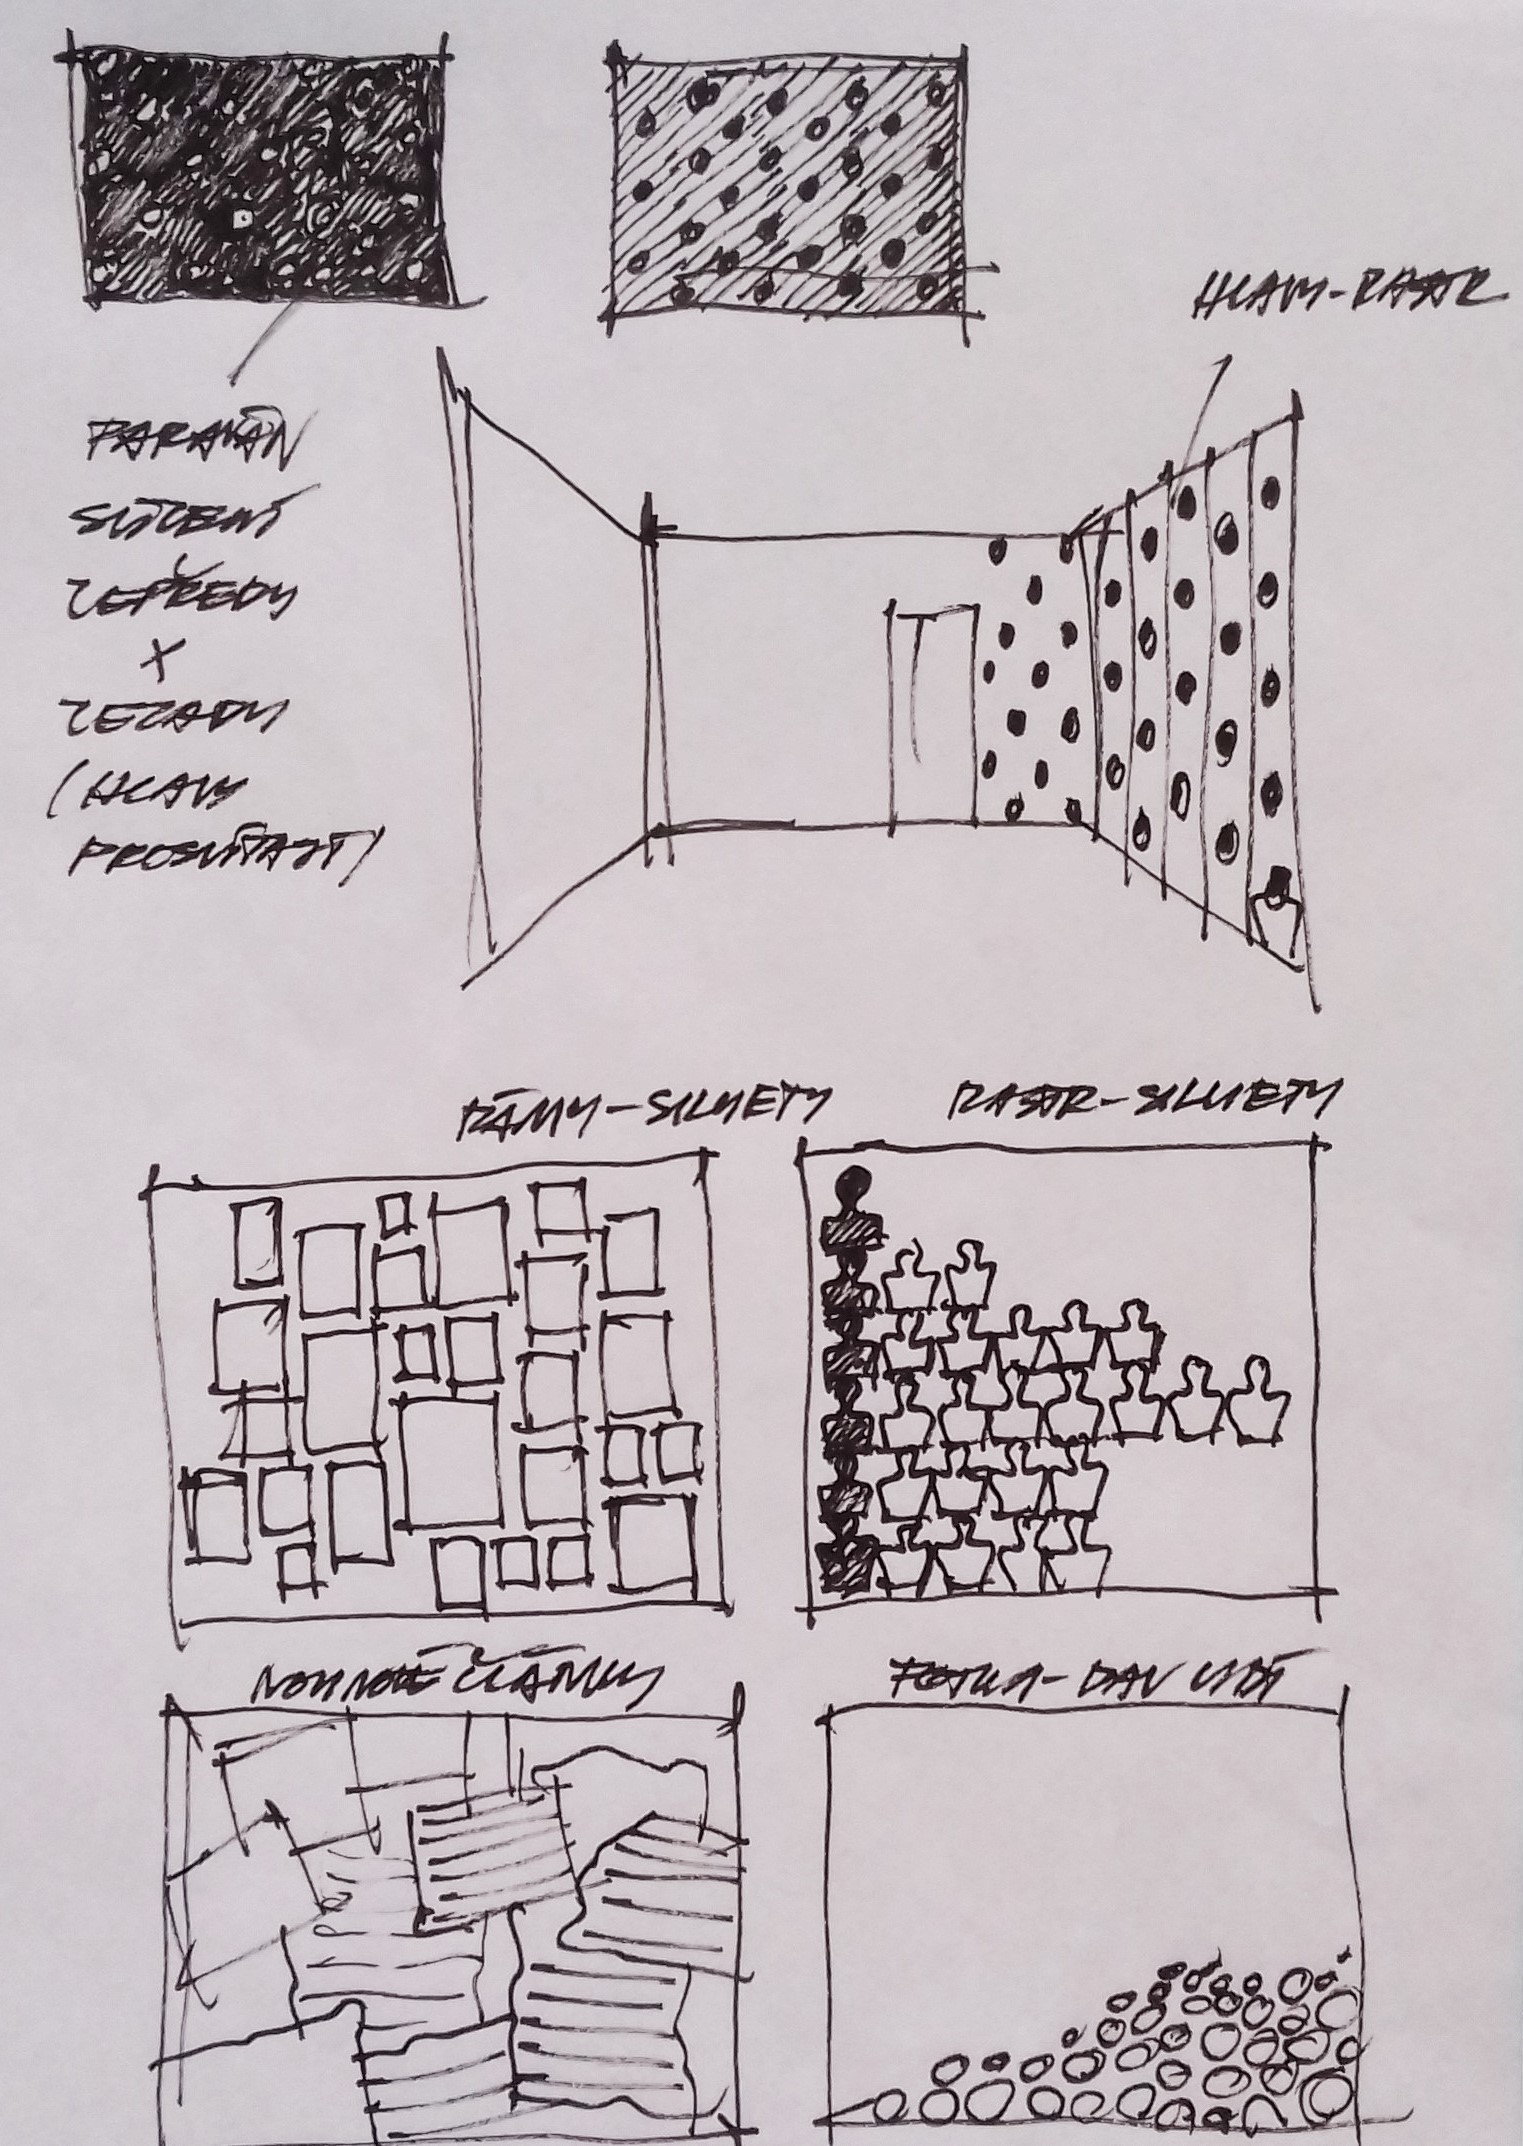 HLAVY-RASTR
PARAVÁN
SVÍCENÍ
ZEPŘEDU
X
ZEZADU
(HLAVY
PROSVÍTAJÍ)
RÁMY-SILUETY
RASTR-SILUETY
NOVINOVÉ ČLÁNKY
FOTKA-DAV LIDÍ